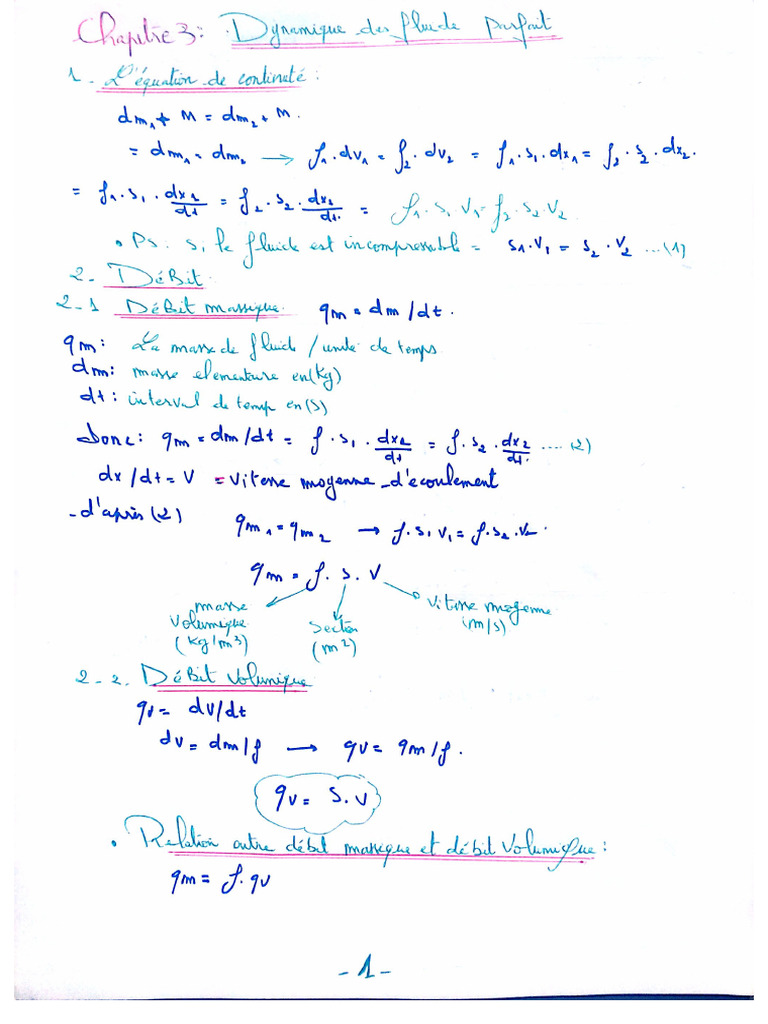 Chapitre 3: Dynamique des fluide Parfait
1- L'équation de continuté :
dm₁ + M = dm₂ + M.
= dm₁ = dm₂ → ƒ₁.dv₁ = ƒ₂.dv₂ = ƒ₁.s₁.dx₁ = ƒ₂.s₂.dx₂.
= ƒ₁.s₁.dx₁/dt = ƒ₂.s₂.dx₂/dt. = ƒ₁.s₁ V₁ = ƒ₂.s₂.V₂
• Ps. si le fluide est incompressable = s₁.V₁ = s₂.V₂ ...(1)
2- Débit.
2-1 Débit massique. qm = dm/dt.
qm: La masse de fluide / unité de temps
dm: masse elementaire en(kg)
dt: interval de temp en(s)
Donc: qm = dm/dt = ƒ.s₁.dx₁/dt = ƒ.s₂.dx₂/dt. ....(2)
dx/dt = V = vitesse moyenne d'écoulement
d'après(2) qm₁ = qm₂ → ƒ.s₁ V₁ = ƒ.s₂.V₂.
qm = ƒ.s.V
masse volumique (kg/m³)
section (m²)
vitesse moyenne (m/s)
2-2. Débit Volumique
qv = dv/dt
dv = dm/ƒ → qv = qm/ƒ.
qv = S.V
• Relation entre débit massique et débit Volumique :
qm = ƒ.qv
-1-